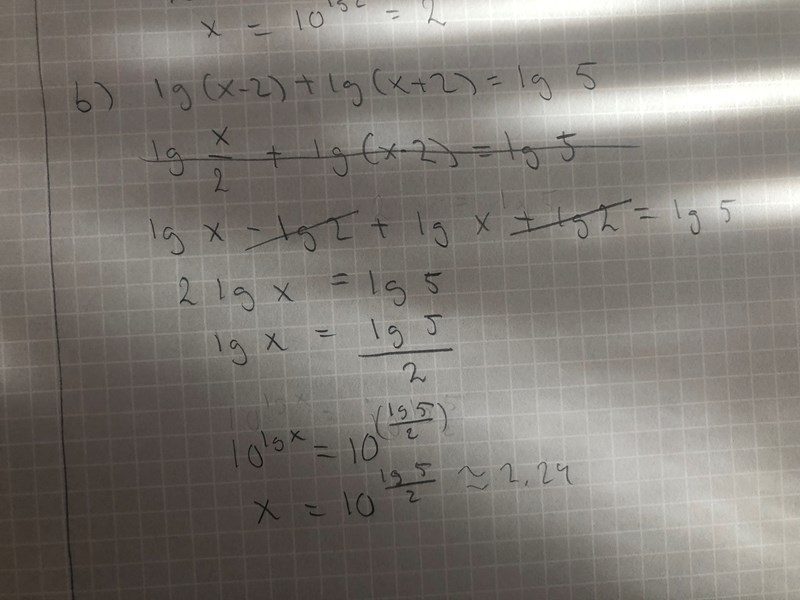 x = 10^lg2 = 2
b) lg(x-2) + lg(x+2) = lg 5
lg x/2 + lg(x·2) = lg 5
lg x - lg 2 + lg x + lg 2 = lg 5
2 lg x = lg 5
lg x = lg 5/2
10^lg x = 10^(lg 5/2)
x = 10^lg 5/2 ≈ 2,24